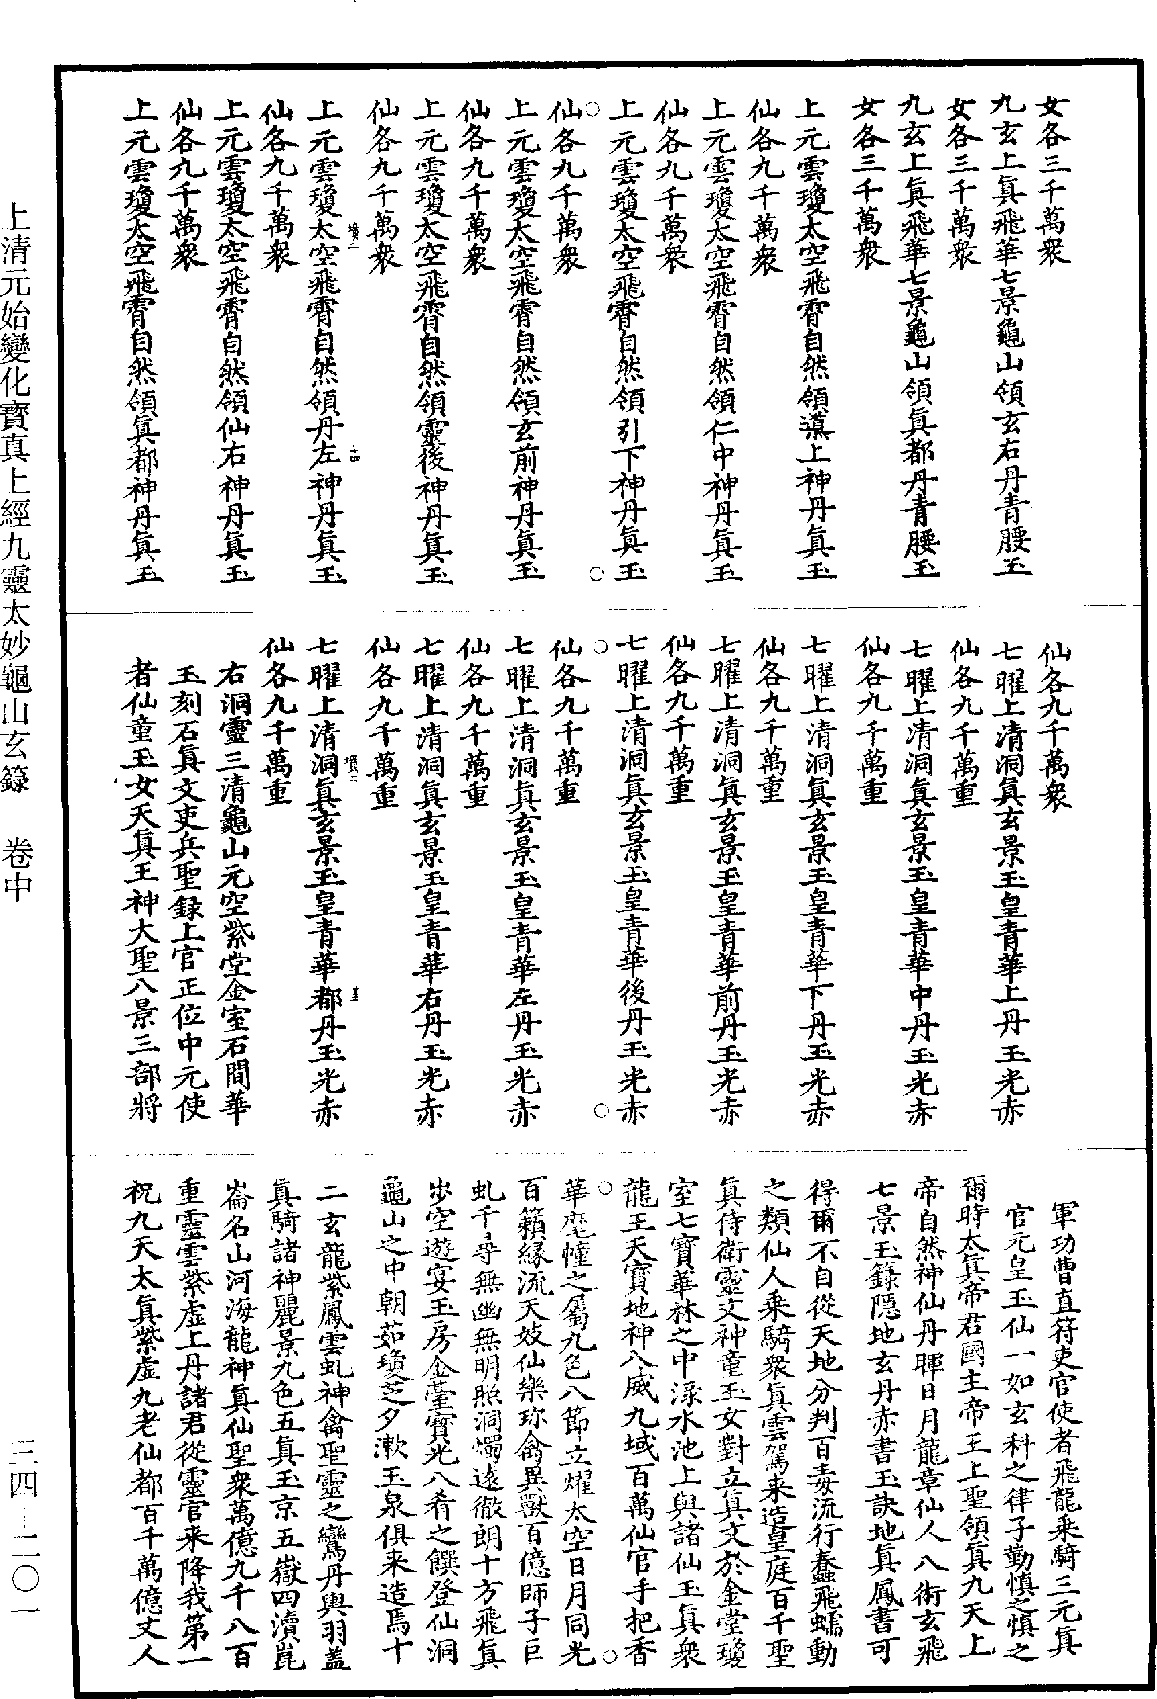 女各三千萬衆
九玄上眞飛華七景龜山領玄右丹青腰玉
女各三千萬衆
九玄上眞飛華七景龜山領眞都丹青腰玉
女各三千萬衆
上元雲瓊太空飛霄自然領導上神丹眞玉
仙各九千萬衆
上元雲瓊太空飛霄自然領仁中神丹眞玉
仙各九千萬衆
上元雲瓊太空飛霄自然領引下神丹眞玉
仙各九千萬衆
上元雲瓊太空飛霄自然領玄前神丹眞玉
仙各九千萬衆
上元雲瓊太空飛霄自然領靈後神丹眞玉
仙各九千萬衆
上元雲瓊太空飛霄自然領丹左神丹眞玉
仙各九千萬衆
上元雲瓊太空飛霄自然領仙右神丹眞玉
仙各九千萬衆
上元雲瓊太空飛霄自然領眞都神丹眞玉
仙各九千萬衆
七曜上清洞眞玄景玉皇青華上丹玉光赤
仙各九千萬重
七曜上清洞眞玄景玉皇青華中丹玉光赤
仙各九千萬重
七曜上清洞眞玄景玉皇青華下丹玉光赤
仙各九千萬重
七曜上清洞眞玄景玉皇青華前丹玉光赤
仙各九千萬重
七曜上清洞眞玄景玉皇青華後丹玉光赤
仙各九千萬重
七曜上清洞眞玄景玉皇青華左丹玉光赤
仙各九千萬重
七曜上清洞眞玄景玉皇青華右丹玉光赤
仙各九千萬重
七曜上清洞眞玄景玉皇青華都丹玉光赤
仙各九千萬重
右洞靈三清龜山元空紫堂金室石間華
玉刻石眞文吏兵聖録上官正位中元使
者仙童玉女天眞王神大聖八景三部將
軍功曹直符吏官使者飛龍乘騎三元眞
官元皇玉仙一如玄科之律子勤愼之愼之
爾時太眞帝君國主帝王上聖領眞九天上
帝自然神仙丹暉日月龍章仙人八術玄飛
七景玉籙隱地玄丹赤書玉訣地眞鳳書可
得爾不自從天地分判百毒流行蠢飛蠕動
之類仙人乘騎衆眞雲駕来造皇庭百千聖
眞侍衛靈文神童玉女對立眞文於金堂瓊
室七寶華林之中淥水池上與諸仙玉眞衆
龍王天寶地神八威九域百萬仙官手把香
華麾幢之屬九色八節立耀太空日月同光
百籟緣流天妓仙樂珎禽異獸百億師子巨
虬千尋無幽無明照洞燭遠徹朗十方飛眞
步空遊宴玉房金臺寶光八肴之饌登仙洞
龜山之中朝茹瓊芝夕漱玉泉俱来造焉十
二玄龍紫鳳雲虬神禽聖靈之鸞丹輿羽蓋
眞騎諸神麗景九色五眞玉京五嶽四瀆崑
崙名山河海龍神眞仙聖衆萬億九千八百
重靈雲紫虛上丹諸君從靈官来降我第一
祝九天太眞紫虛九老仙都百千萬億丈人
上清元始變化寶真上經九靈太妙龜山玄籙　卷中
三四—二〇一